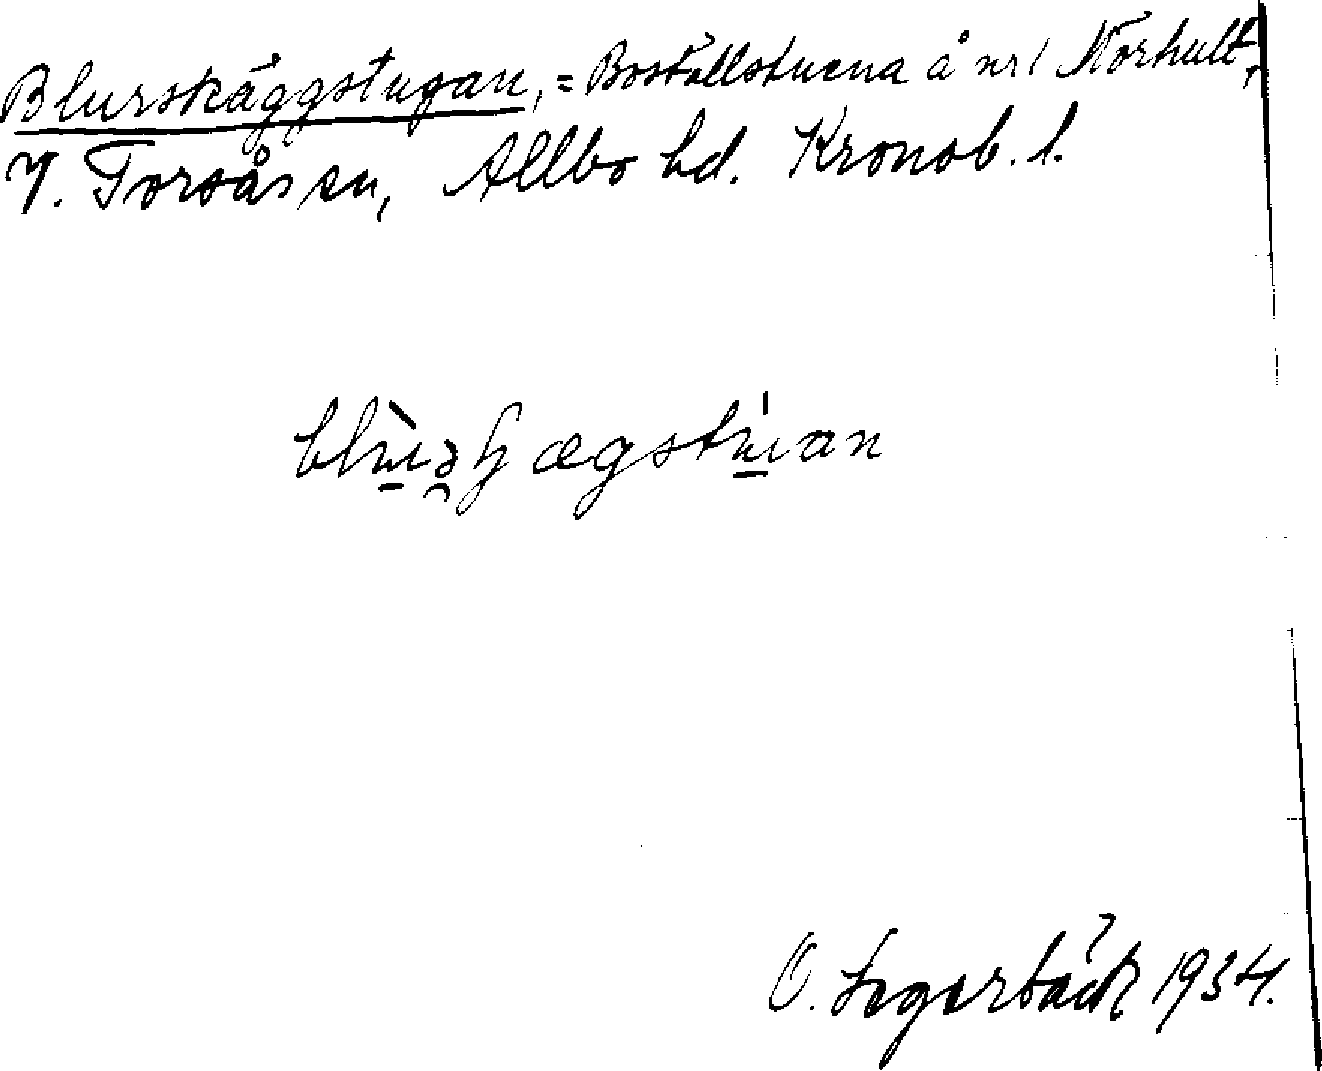 Blurskäggstugan, = Boställstuena å nr 1 Norhult,
V. Torsås sn, Allbo hd. Kronob. l.
O. Segerbäck 1934.